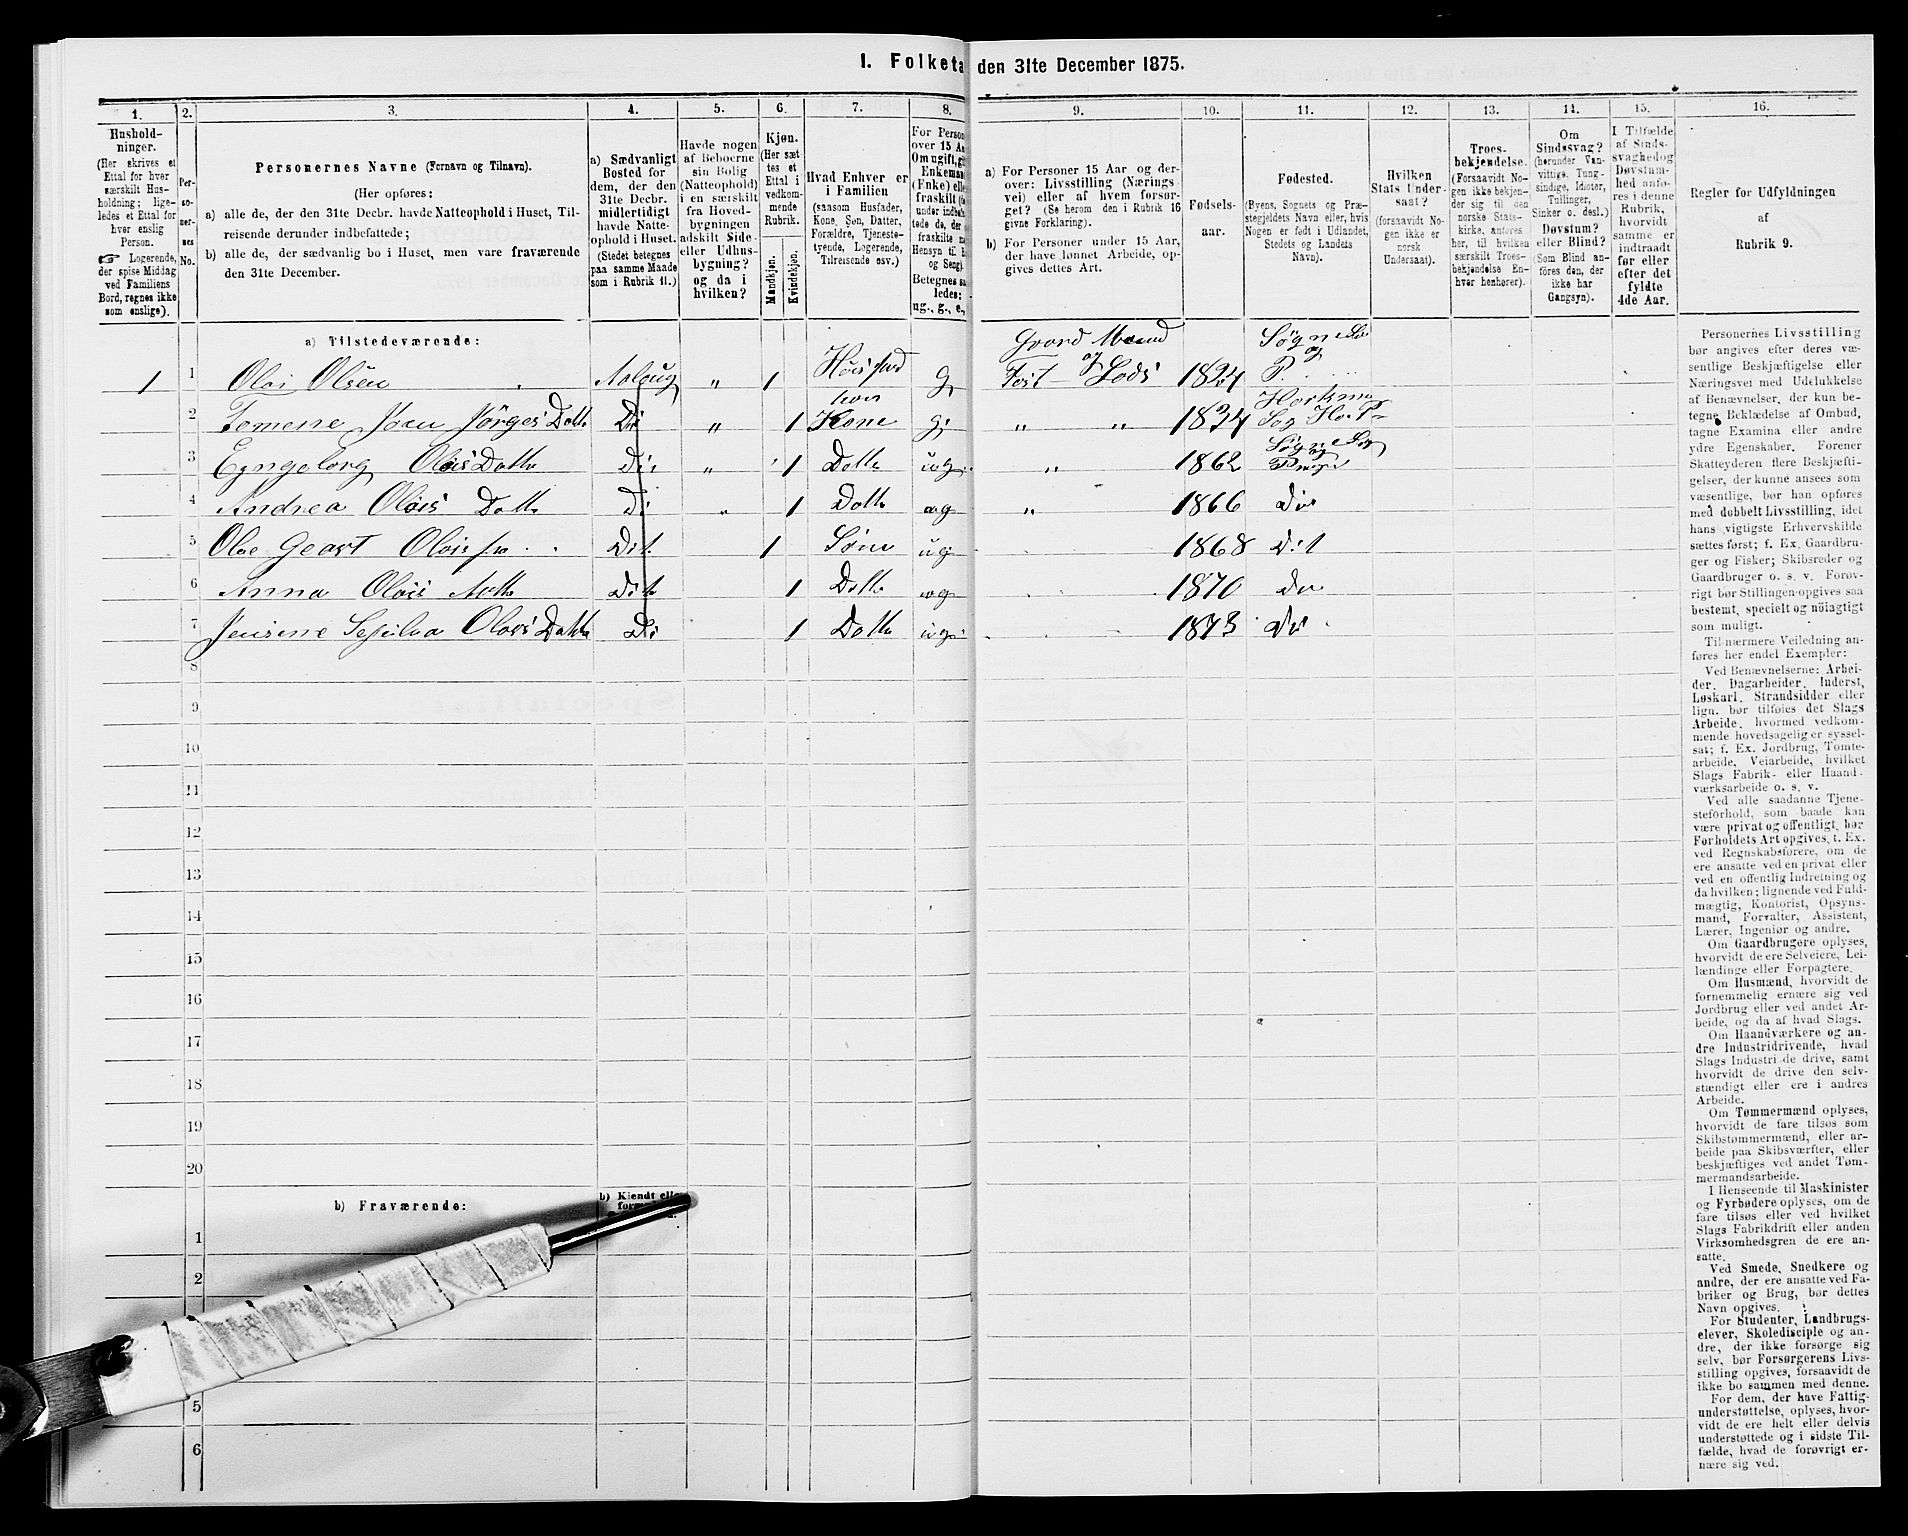 I. Folketa den 31te December 1875.
1. 2. 3. 4. 5. 6. 7. 8. 9. 10. 11. 12. 13. 14. 15. 16.
Hushold-
ninger.
(Her skrives et
Ettal for hver
særskilt Hus-
holdning; lige-
ledes et Ettal for
hver enslig
Person.
☞ Logerende,
der spise Middag
ved Familiens
Bord, regnes ikke
som enslige).
Per-
so-
ner-
nes
No.
Personernes Navne (Fornavn og Tilnavn).
(Her opføres:
a) alle de, der den 31te Decbr. havde Natteophold i Huset, Til-
reisende derunder indbefattede;
b) alle de, der sædvanlig bo i Huset, men vare fraværende
den 31te December.
a) Sædvanligt
Bosted for
dem, der den
31te Decbr.
midlertidigt
havde Natte-
ophold i Huset.
(Stedet betegnes
paa samme Maade
som i Rubrik 11.)
Havde nogen
af Beboerne
sin Bolig
(Natteophold)
i en særskilt
fra Hoved-
bygningen
adskilt Side-
eller Udhus-
bygning?
og da i
hvilken?
Kjøn.
(Her sæt-
tes et
Ettal i
vedkom-
mende
Rubrik.
Mandkjøn.
Kvindekjøn.
Hvad Enhver er
i Familien
(saasom Husfader,
Kone, Søn, Datter,
Forældre, Tjeneste-
tyende, Logerende,
Tilreisende osv.)
For Person
over 15 Aa
Om ugift, gi
Enkeman
(Enke) elle
fraskilt (fo
under indbe
tede de, der
fraskilte m
Hensyn til B
og Seng).
Betegnes sa
ledes:
ug., g., e.,
a) For Personer 15 Aar og der-
over: Livsstilling (Nærings-
vei) eller af hvem forsør-
get? (Se herom den i Rubrik 16
givne Forklaring).
b) For Personer under 15 Aar,
der have lønnet Arbeide, op-
gives dettes Art.
Fødsels-
aar.
Fødested.
(Byens, Sognets og Præ-
stegjeldets Navn eller, hvis
Nogen er født i Udlandet,
Stedets og Landets
Navn).
Hvilken
Stats Under-
saat?
(forsaavidt No-
gen ikke er
norsk
Undersaat).
Troes-
bekjendelse.
(Forsaavidt No-
gen ikke bekjen-
der sig til den
norske Stats-
kirke, anføres
her, til hvilken
særskilt Troes-
bekjendelse En-
hver henhører).
Om
Sindssvag?
(herunder Van-
vittige, Tung-
sindige, Idioter,
Tullinger,
Sinker o. desl.)
Døvstum?
eller Blind?
(Som Blind an-
føres den, der
ikke har
Gangsyn).
I Tilfælde
af Sinds-
svaghed og
Døvstum-
hed anfø-
res i denne
Rubrik,
hvorvidt
samme er
indtraadt
før eller
efter det
fyldte
4de Aar.
Regler for Udfyldningen
af
Rubrik 9.
a) Tilstedeværende:
1 1 Olai Olsen Aalaug „ 1 g Gaard Mand og Lods 1824 Søgne og P.
2 Tomene Jørgis Datt „ 1 Kone g „ „ 1834 Sog P
3 Olais Datt „ 1 Datte ug „ 1862 Søgne Sog
4 Andrea Olais Datt „ 1 Datte ug „ 1866
5 Ole Olais 1 Søn ug 1868 Dit
6 Anna Olais Datt Dit 1 Datte ug 1870
7 Jensine Olais Datte 1 Datte ug 1873
8
9
10
11
12
13
14
15
16
17
18
19
20
b) Fraværende:
b) Kjendt elle
1
2
5
6
Personernes Livsstilling
bør angives efter deres væ-
sentlige Beskjæftigelse eller
Næringsvei med Udelukkelse
af Benævnelser, der kun be-
tegne Beklædelse af Ombud,
tagne Examina eller andre
ydre Egenskaber. Forener
Skatteyderen flere Beskjæfti-
gelser, der kunne ansees som
væsentlige, bør han opføres
med dobbelt Livsstilling, idet
hans vigtigste Erhvervskilde
sættes først; f. Ex. Gaardbru-
ger og Fisker; Skibsreder og
Gaardbruger o. s. v. Forøv-
rigt bør Stillingen opgives saa
bestemt, specielt og nøiagtigt
som muligt.
Til nærmere Veiledning an-
føres her endel Exempler:
Ved Benævnelserne: Arbei-
der, Dagarbeider, Inderst,
Løskarl, Strandsidder eller
lign. bør tilføies det Slags
Arbeide, hvormed vedkom-
mende hovedsagelig er syssel-
sat; f. Ex. Jordbrug, Tomte-
arbeide, Veiarbeide, hvilket
Slags Fabrik- eller Haand-
værksarbeide o. s. v.
Ved alle saadanne Tjene-
steforhold, som baade kan
være privat og offentligt, bør
Forholdets Art opgives, f. Ex.
ved Regnskabsførere, om de
ere ansatte ved en privat eller
ved en offentlig Indretning og
da hvilken; lignende ved Fuld-
mægtig, Kontorist, Opsyns-
mand, Forvalter, Assistent,
Lærer, Ingeniør og andre.
Om Gaardbrugere oplyses,
hvorvidt de ere Selveiere, Lei-
lændinge eller Forpagtere.
Om Husmænd, hvorvidt de
fornemmelig ernære sig ved
Jordbrug eller ved andet Ar-
beide, og da af hvad Slags.
Om Haandværkere og an-
dre Industridrivende, hvad
Slags Industri de drive, samt
hvorvidt de drive den selv-
stændigt eller ere i andres
Arbeide.
Om Tømmermænd oplyses,
hvorvidt de fare tilsøs som
Skibstømmermænd, eller ar-
beide paa Skibsværfter, eller
beskjæftiges ved andet Tøm-
mermandsarbeide.
I Henseende til Maskinister
og Fyrbødere oplyses, om de
fare tilsøs eller ved hvilket
Slags Fabrikdrift eller anden
Virksomhedsgren de ere an-
satte.
Ved Smede, Snedkere og
andre, der ere ansatte ved Fa-
briker og Brug, bør dettes
Navn opgives.
For Studenter, Landbrugs-
elever, Skoledisciple og an-
dre, der ikke forsørge sig
selv, bør Forsørgerens Livs-
stilling opgives, forsaavidt de
ikke bo sammen med denne.
For dem, der have Fattig-
understøttelse, oplyses, hvor-
vidt de ere helt eller delvis
understøttede og i sidste Til-
fælde, hvad de forøvrigt er-
nære sig ved.